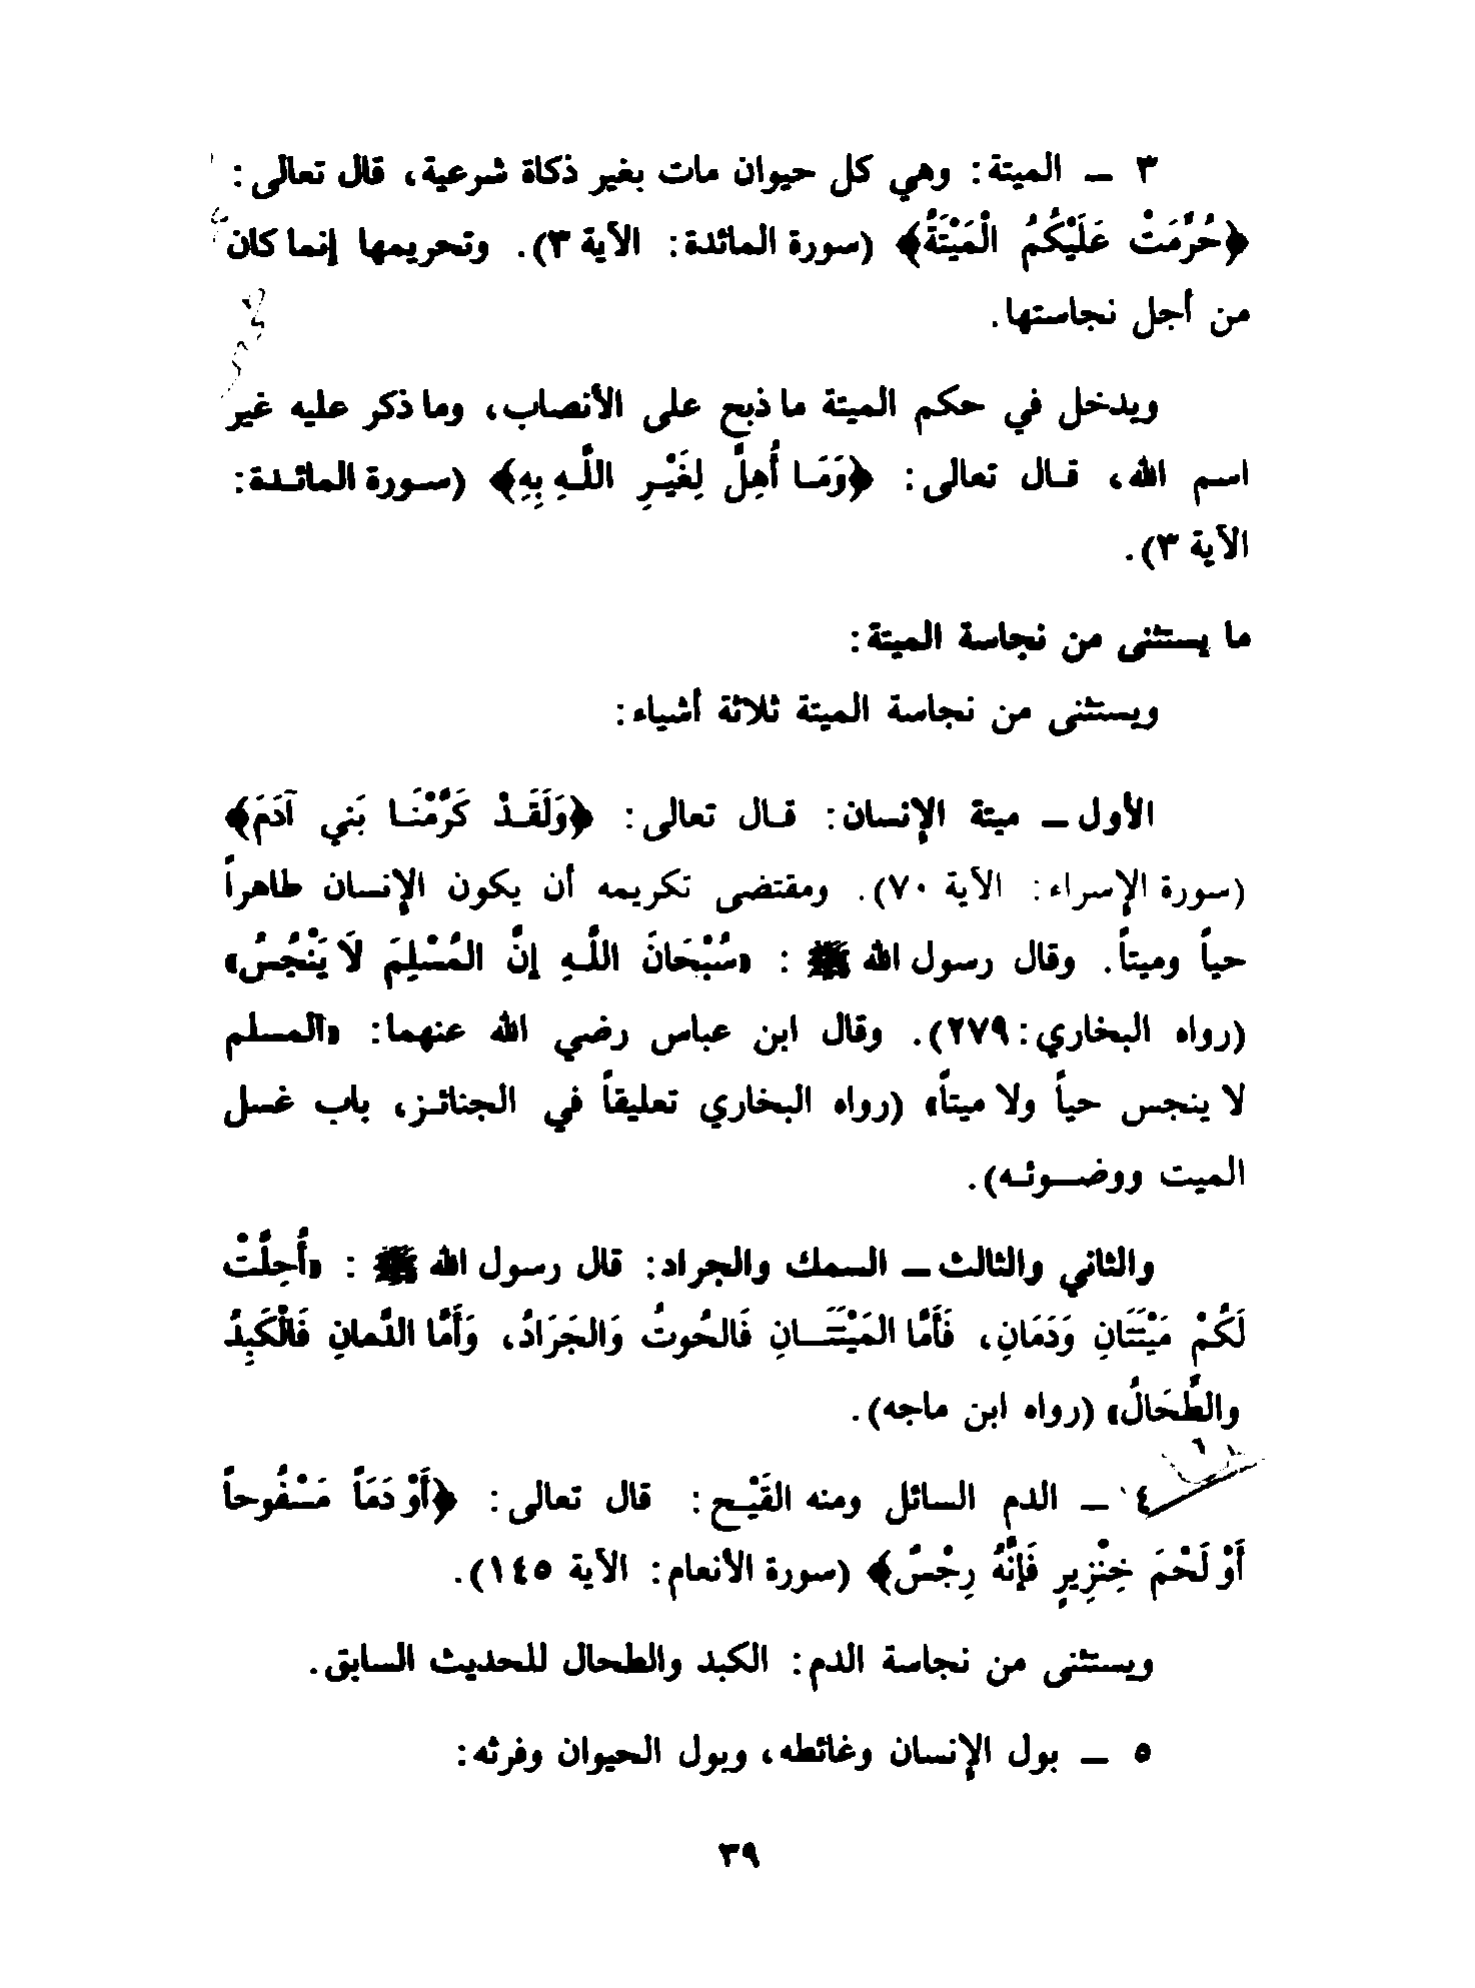 ٣ ــ الميتة: وهي كل حيوان مات بغير ذكاة شرعية، قال تعالى:
﴿حُرِّمَتْ عَلَيْكُمُ الْمَيْتَةُ﴾ (سورة المائدة: الآية ٣). وتحريمها إنما كان
من أجل نجاستها.
ويدخل في حكم الميتة ما ذبح على الأنصاب، وما ذكر عليه غير
اسم الله، قـال تعالى: ﴿وَمَـا أُهِلَّ لِغَيْـرِ اللَّـهِ بِهِ﴾ (سـورة المائـدة:
الآية ٣).
ما يستثنى من نجاسة الميتة:
ويستثنى من نجاسة الميتة ثلاثة أشياء:
الأول ــ ميتة الإنسان: قـال تعالى: ﴿وَلَقَـدْ كَرَّمْنَـا بَنِي آدَمَ﴾
(سورة الإسراء: الآية ٧٠). ومقتضى تكريمه أن يكون الإنسان طاهراً
حياً وميتاً. وقال رسول الله ﷺ: «سُبْحَانَ اللَّـهِ إِنَّ المُسْلِمَ لَا يَنْجُسُ»
(رواه البخاري: ٢٧٩). وقال ابن عباس رضي الله عنهما: «المسلم
لا ينجس حياً ولا ميتاً» (رواه البخاري تعليقاً في الجنائـز، باب غسل
الميت ووضـوئـه).
والثاني والثالث ــ السمك والجراد: قال رسول الله ﷺ: «أُحِلَّتْ
لَكُمْ مَيْتَتَانِ وَدَمَانِ، فَأَمَّا المَيْتَتَــانِ فَالحُوتُ وَالجَرَادُ، وَأَمَّا الدَّمانِ فَالْكَبِدُ
والطِّحَالُ» (رواه ابن ماجه).
٤ ــ الدم السائل ومنه القَيْـح: قال تعالى: ﴿أَوْ دَمَاً مَسْفُوحاً
أَوْ لَحْمَ خِنْزِيرٍ فَإِنَّهُ رِجْسٌ﴾ (سورة الأنعام: الآية ١٤٥).
ويستثنى من نجاسة الدم: الكبد والطحال للحديث السابق.
٥ ــ بول الإنسان وغائطه، وبول الحيوان وفرثه:
٣٩